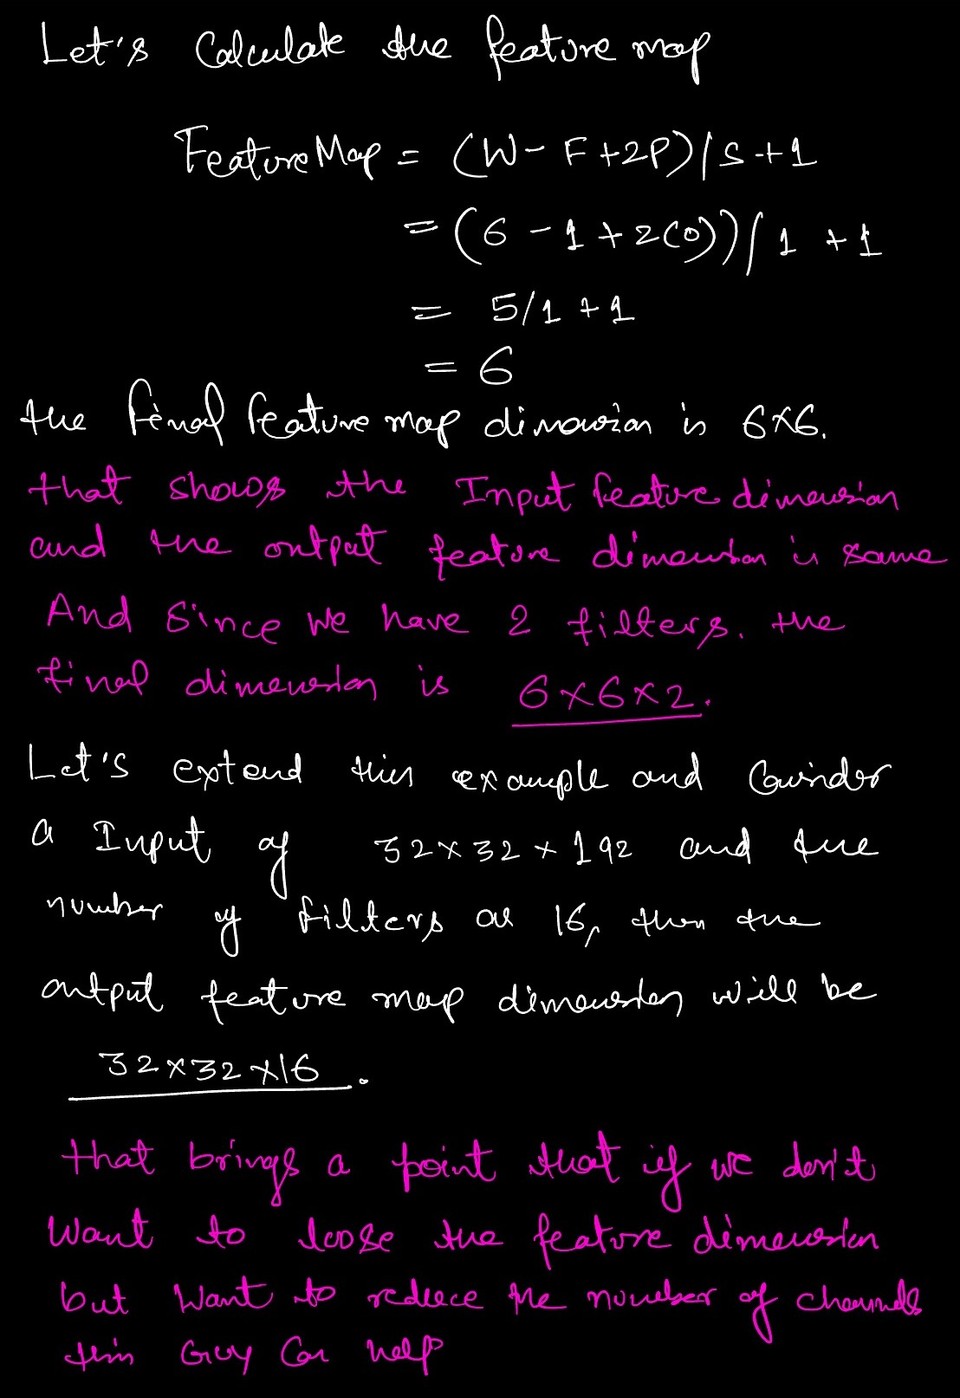 Let's Calculate the feature map
Feature Map = (W - F + 2P)/S + 1
= (6 - 1 + 2(0))/1 + 1
= 5/1 + 1
= 6
the final feature map dimension is 6x6.
that shows the Input feature dimension
and the output feature dimension is same
And Since we have 2 filters. the
final dimension is 6x6x2.
Let's extend this example and Consider
a Input of 32x32x192 and the
number of filters as 16, then the
output feature map dimension will be
32x32x16.
that brings a point that if we don't
want to loose the feature dimension
but want to reduce the number of channels
this Guy Can help